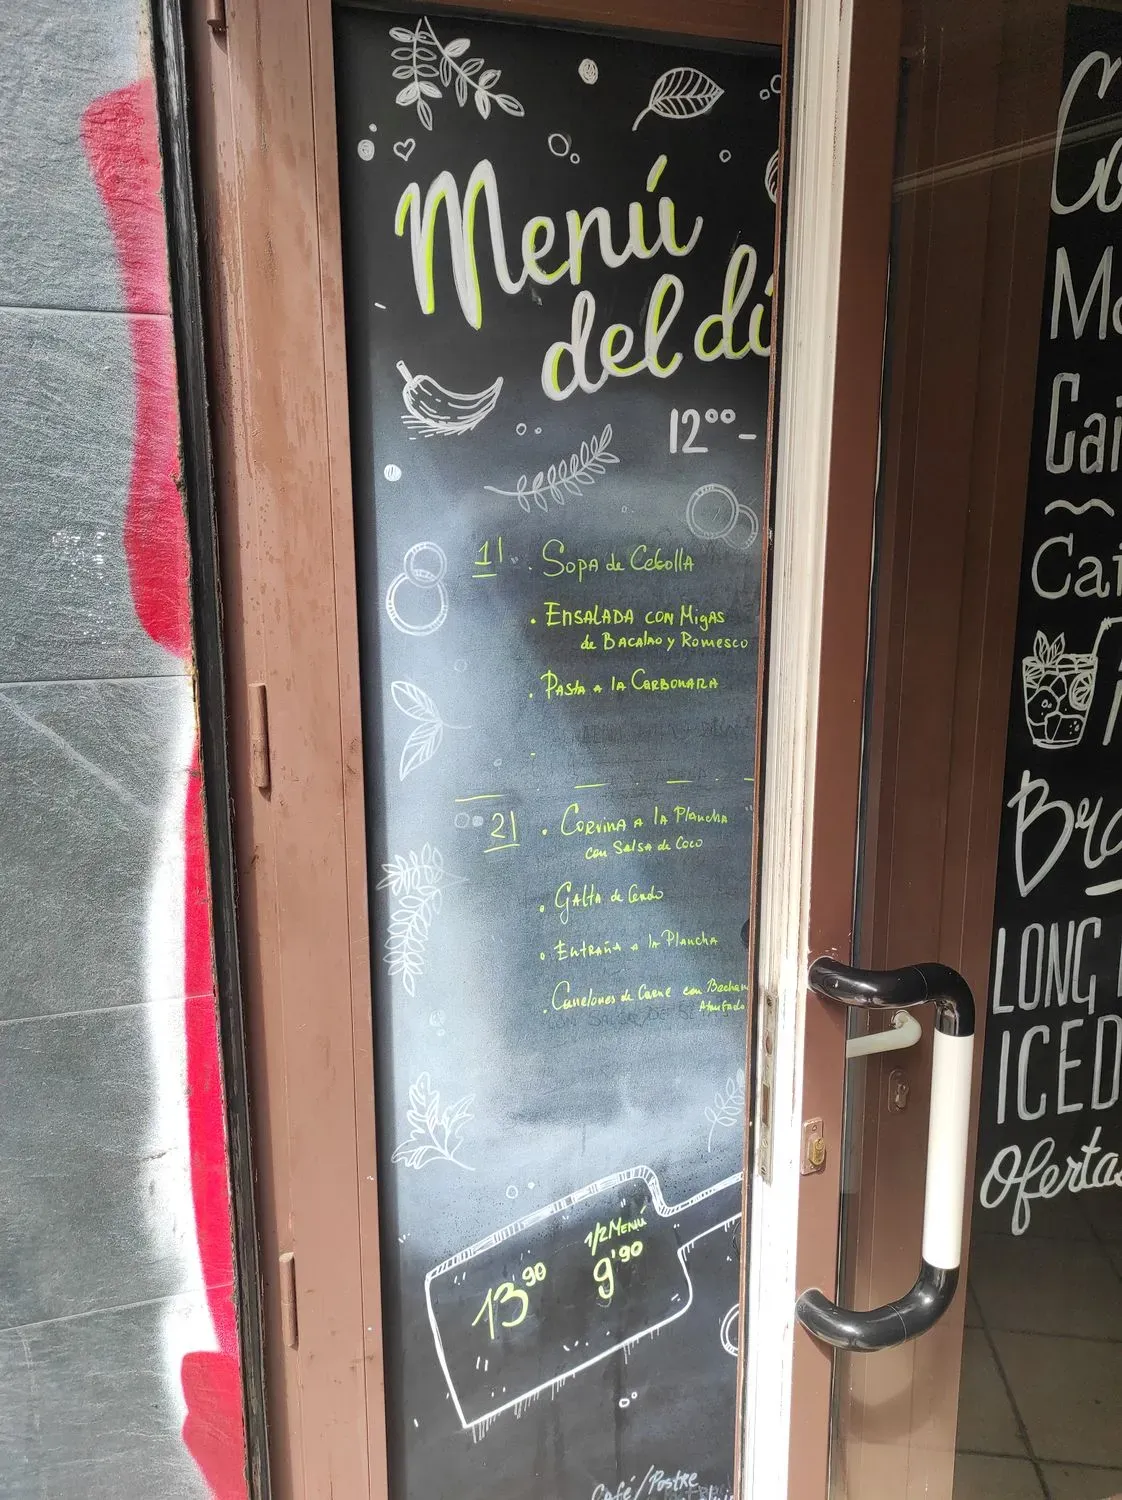 Menú
del dí
12⁰⁰-
1| · Sopa de Cebolla
· Ensalada con Migas
de Bacalao y Romesco
· Pasta a la Carbonara
-
2| · Corvina a la Plancha
con Salsa de Coco
· Galta de Cerdo
· Entraña a la Plancha
· Canelones de Carne con Becham
13'90
1/2 Menú
9'90
Café/Postre
Co
Mo
Cai
~
Cai
Bra
LONG
ICED
Ofertas